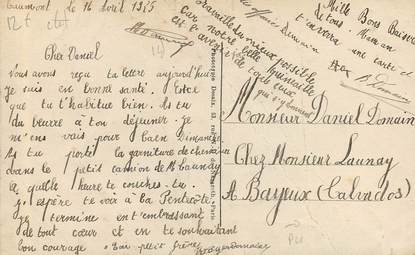 Caumont le 16 Avril 1915
Cher Daniel
Nous avons reçu ta lettre aujourd'hui
je suis en bonne santé. Est ce
que tu t'habitue bien. As tu
du beurre à ton déjeuner. je
m'en vais pour Caen Dimanche
As tu porté la garniture de cheminée
dans le petit camion de M. Launay
à quelle heure te couches-tu.
j'espère te voir à la Pentecôte
je termine en t'embrassant
de tout cœur et en te souhaitant
bon courage Ton petit frère
Travaille du mieux possible
car notre belle
est l'avenir de tous ceux
qui s'y donnent
Mille Bons Baisers
Maman
t'enverra une carte
Monsieur Daniel Domain
Chez Monsieur Launay
A Bayeux (Calvados)